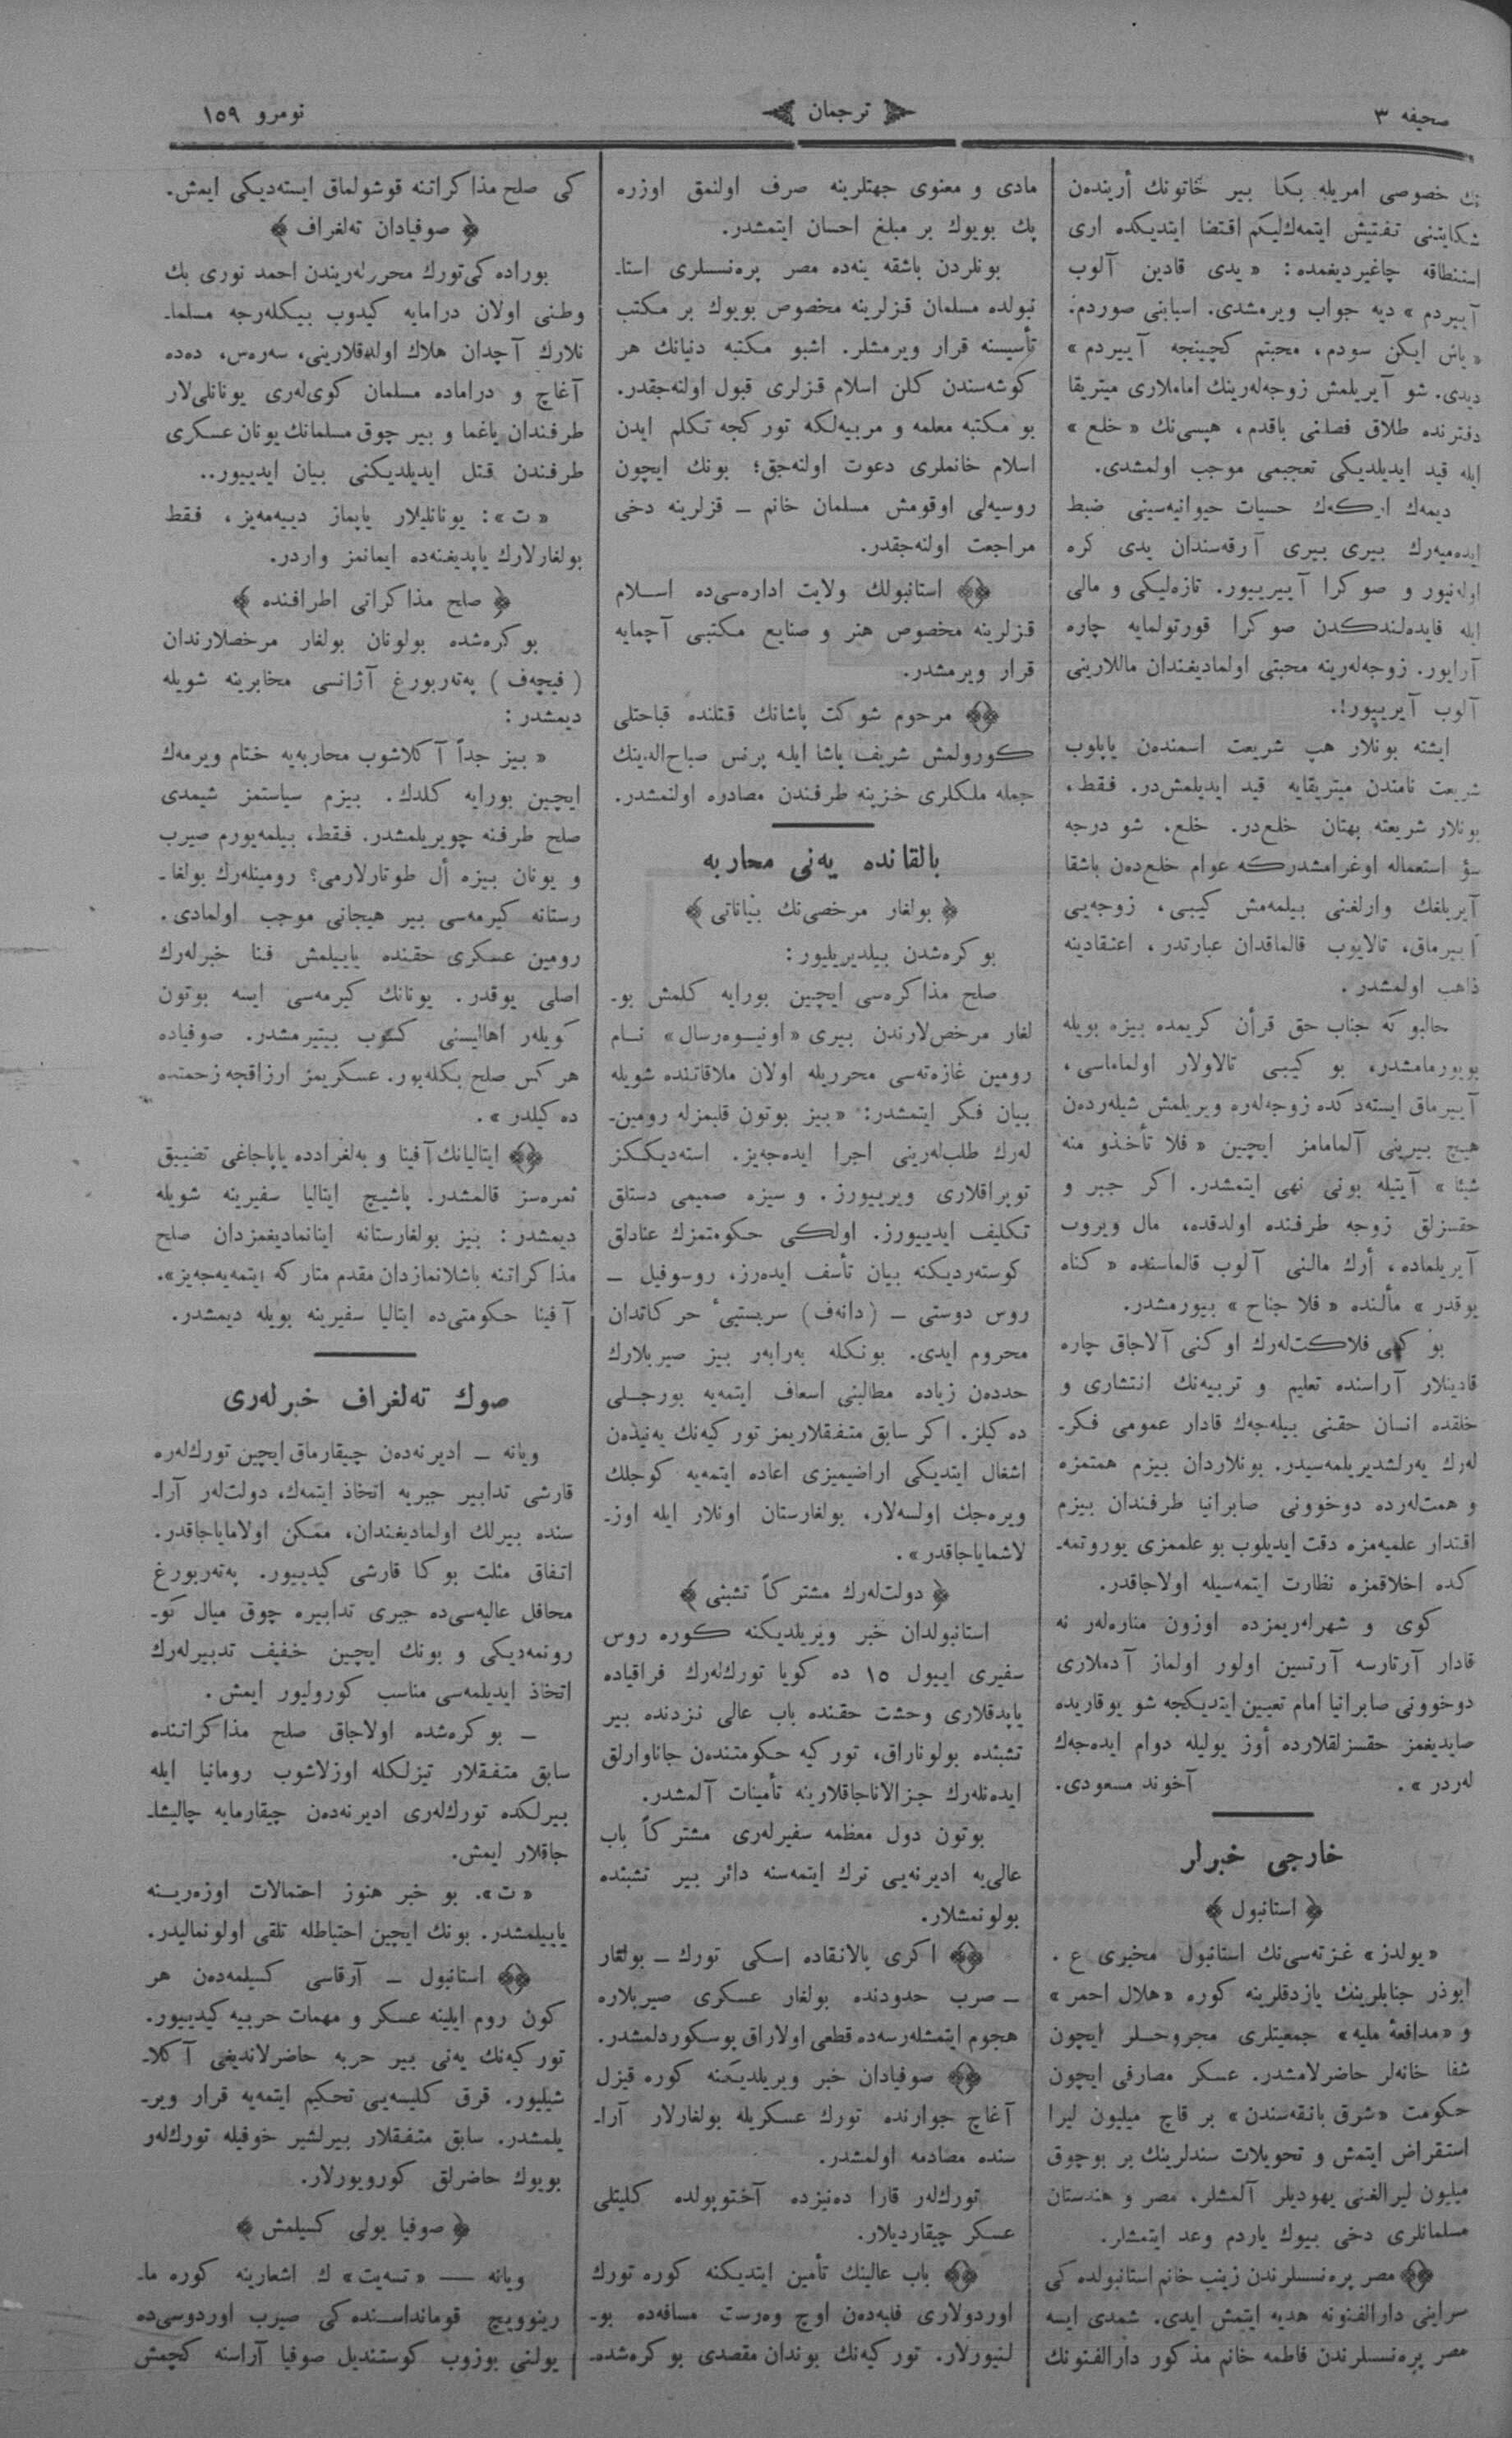 صحیفه ٣
ترجمان
نومرو ١٥٩
نك خصوصی امریله بكا بیر خاتونك أریندەن
شكایتنی تفتیش ایتمەك‌لیكم اقتضا ایتدیكده اری
استنطاقه چاغیردیغمده: «یدی قادین آلوب
آییردم» دیه جواب ویرمشدی. اسبابنی صوردم:
«یاش ایكن سودم، محبتم كچینجه آییردم»
دیدی. شو آیریلمش زوجه‌لەرینك اماملاری میتریقا
دفترنده طلاق فصلنی باقدم، هپسی‌نك «خلع»
ایله قید ایدیلدیكی تعجبمی موجب اولمشدی.
دیمەك اركەك حسیات حیوانیه‌سینی ضبط
ایدەمیەرك بیری بیری آرقه‌سندان یدی كره
اولەنیور و صوكرا آییرییور. تازەلیكی و مالی
ایله فایدەلندكدن صوكرا قورتولمایه چاره
آرایور. زوجه‌لەرینه محبتی اولمادیغندان ماللارینی
آلوب آیرییور!.
ایشته بونلار هپ شریعت اسمندەن یاپلوب
شریعت نامندن میتریقایه قید ایدیلمش‌در. فقط،
بونلار شریعته بهتان خلع‌در. خلع. شو درجه
سؤ استعماله اوغرامشدركه عوام خلع‌دەن باشقا
آیریلغك وارلغنی بیلمەمش كیبی، زوجه‌یی
آییرماق، تالایوب قالماقدان عبارتدر، اعتقادینه
ذاهب اولمشدر.
حالبوكه جناب حق قرأن كریمده بیزه بویله
بویورمامشدر، بو كیبی تالاولار اولماماسی،
آییرماق ایستەدكده زوجه‌لەره ویریلمش شیلەردەن
هیچ بیرینی آلمامامز ایچین «فلا تأخذو منه
شیئا» آیتیله بونی نهی ایتمشدر. اكر جبر و
حقسزلق زوجه طرفنده اولدقده، مال ویروب
آیریلماده، أرك مالنی آلوب قالماسنده «كناه
یوقدر» مألنده «فلا جناح» بیورمشدر.
بو كبی فلاكت‌لەرك اوكنی آلاجاق چاره
قادینلار آراسنده تعلیم و تربیه‌نك انتشاری و
خلقده انسان حقنی بیلەجەك قادار عمومی فكر۔
لەرك یەرلشدیریلمەسیدر. بونلاردان بیزم همتمزه
و همت‌لەرده دوخوونی صابرانیا طرفندان بیزم
اقتدار علمیەمزه دقت ایدیلوب بو علممزی یوروتمه۔
كده اخلاقمزه نظارت ایتمەسیله اولاجاقدر.
كوی و شهرلەریمزده اوزون منارەلەر نه
قادار آرتارسه آرتسین اولور اولماز آدملاری
دوخوونی صابرانیا امام تعیین ایتدیكجه شو یوقاریده
صایدیغمز حقسزلقلارده أوز یولیله دوام ایدەجەك
لەردر».   آخوند مسعودی.
خارجی خبرلر
﴿ استانبول ﴾
«یولدز» غزتەسی‌نك استانبول مخبری ع.
ابوذر جنابلرینك یازدقلرینه كوره «هلال احمر»
و «مدافعهٔ ملیه» جمعیتلری مجروحلر ایچون
شفا خانەلر حاضرلامشدر. عسكر مصارفی ایچون
حكومت «شرق بانقەسندن» بر قاچ میلیون لیرا
استقراض ایتمش و تحویلات سندلرینك بر بوچوق
میلیون لیرالغنی یهودیلر آلمشلر، مصر و هندستان
مسلمانلری دخی بیوك یاردم وعد ایتمشلر.
مصر پرەنسسلرندن زینب خانم استانبولده كی
سراینی دارالفنونه هدیه ایتمش ایدی. شمدی ایسه
مصر پرەنسسلرندن فاطمه خانم مذكور دارالفنونك
مادی و معنوی جهتلرینه صرف اولنمق اوزره
پك بویوك بر مبلغ احسان ایتمشدر.
بونلردن باشقه ینەده مصر پرەنسسلری استا۔
نبولده مسلمان قزلرینه مخصوص بویوك بر مكتب
تأسیسنه قرار ویرمشلر. اشبو مكتبه دنیانك هر
كوشەسندن كلن اسلام قزلری قبول اولنەجقدر.
بو مكتبه معلمه و مربیه‌لكه توركجه تكلم ایدن
اسلام خانملری دعوت اولنەجق؛ بونك ایچون
روسیەلی اوقومش مسلمان خانم – قزلرینه دخی
مراجعت اولنەجقدر.
استانبولك ولایت ادارەسی‌ده اسلام
قزلرینه مخصوص هنر و صنایع مكتبی آچمایه
قرار ویرمشدر.
مرحوم شوكت پاشانك قتلنده قباحتلی
كورولمش شریف پاشا ایله پرنس صباح‌الدینك
جمله ملكلری خزینه طرفندن مصادره اولنمشدر.
بالقانده یەنی محاربه
﴿ بولغار مرخصی‌نك بیاناتی ﴾
بوكرەشدن بیلدیریلیور:
صلح مذاكرەسی ایچین بورایه كلمش بو۔
لغار مرخص‌لارندن بیری «اونیوەرسال» نام
رومین غازەتەسی محرریله اولان ملاقاتنده شویله
بیان فكر ایتمشدر: «بیز بوتون قلبمزله رومین۔
لەرك طلب‌لەرینی اجرا ایدەجەیز. استەدیككز
توپراقلاری ویرییورز. و سیزه صمیمی دستلق
تكلیف ایدییورز. اولكی حكومتمزك عنادلق
كوستەردیكنه بیان تأسف ایدەرز، روسوفیل –
روس دوستی – (دانەف) سربستیئ حركاتدان
محروم ایدی. بونكله بەرابەر بیز صیربلارك
حددەن زیاده مطالبنی اسعاف ایتمەیه بورجلی
دەكیلز. اكر سابق متفقلاریمز توركیەنك یەنیدەن
اشغال ایتدیكی اراضیمیزی اعاده ایتمەیه كوجلك
ویرەجك اولسەلار، بولغارستان اونلار ایله اوز۔
لاشمایاجاقدر».
﴿ دولت‌لەرك مشتركاً تشبثی ﴾
استانبولدان خبر ویریلدیكنه كوره روس
سفیری اییول ١٥ ده كویا تورك‌لەرك فراقیاده
یاپدقلاری وحشت حقنده باب عالی نزدنده بیر
تشبثده بولوناراق، توركیه حكومتندەن جاناوارلق
ایدەنلەرك جزالاناجاقلارینه تأمینات آلمشدر.
بوتون دول معظمه سفیرلەری مشتركاً باب
عالی‌یه ادیرنەیی ترك ایتمەسنه دائر بیر تشبثده
بولونمشلار.
اكری بالانقاده اسكی تورك – بولغار
– صرب حدودنده بولغار عسكری صیربلاره
هجوم ایتمشلەرسەده قطعی اولاراق پوسكوردلمشدر.
صوفیادان خبر ویریلدیكنه كوره قیزل
آغاچ جوارنده تورك عسكریله بولغارلار آرا۔
سنده مصادمه اولمشدر.
تورك‌لەر قارا دەنیزده آختوپولده كلیتلی
عسكر چیقاردیلار.
باب عالینك تأمین ایتدیكنه كوره تورك
اوردولاری فلبەدەن اوچ وەرست مسافەده بو۔
لنیورلار. توركیەنك بوندان مقصدی بوكرەشده۔
كی صلح مذاكراتنه قوشولماق ایستەدیكی ایمش.
﴿ صوفیادان تەلغراف ﴾
بوراده كی تورك محررلەریندن احمد نوری بك
وطنی اولان درامایه كیدوب بیكلەرجه مسلما۔
نلارك آچدان هلاك اولدقلارینی، سەرەس، دەده
آغاچ و دراماده مسلمان كوی‌لەری یونانلی‌لار
طرفندان یاغما و بیر چوق مسلمانك یونان عسكری
طرفندن قتل ایدیلدیكنی بیان ایدییور..
«ت»: یونانلیلار یاپماز دییەمەیز، فقط
بولغارلارك یاپدیغنەده ایمانمز واردر.
﴿ صلح مذاكراتی اطرافنده ﴾
بوكرەشده بولونان بولغار مرخصلارندان
(فیچەف) پەتەربورغ آژانسی مخابرینه شویله
دیمشدر:
«بیز جداً آكلاشوب محاربەیه ختام ویرمەك
ایچین بورایه كلدك. بیزم سیاستمز شیمدی
صلح طرفنه چویریلمشدر. فقط، بیلمەیورم صیرب
و یونان بیزه أل طوتارلارمی؟ رومینلەرك بولغا۔
رستانه كیرمەسی بیر هیجانی موجب اولمادی.
رومین عسكری حقنده یاییلمش فنا خبرلەرك
اصلی یوقدر. یونانك كیرمەسی ایسه بوتون
كویلەر اهالیسنی كسوب بیتیرمشدر. صوفیاده
هركس صلح بكلەیور. عسكریمز ارزاقجه زحمتده
دەكیلدر».
ایتالیانك آفینا و بەلغرادده یاپاجاغی تضییق
ثمرەسز قالمشدر. پاشیچ ایتالیا سفیرینه شویله
دیمشدر: بیز بولغارستانه اینانمادیغمزدان صلح
مذاكراتنه باشلانمازدان مقدم متاركه ایتمەیەجەیز».
آفینا حكومتی‌ده ایتالیا سفیرینه بویله دیمشدر.
صوك تەلغراف خبرلەری
ویانه – ادیرنەدەن چیقارماق ایچین تورك‌لەره
قارشی تدابیر جبریه اتخاذ ایتمەك، دولت‌لەر آرا۔
سنده بیرلك اولمادیغندان، ممكن اولامایاجاقدر.
اتفاق مثلث بوكا قارشی كیدییور. پەتەربورغ
محافل عالیەسی‌ده جبری تدابیره چوق میال كو۔
رونمەدیكی و بونك ایچین خفیف تدبیرلەرك
اتخاذ ایدیلمەسی مناسب كورولیور ایمش.
– بوكرەشده اولاجاق صلح مذاكراتنده
سابق متفقلار تیزلكله اوزلاشوب رومانیا ایله
بیرلكده تورك‌لەری ادیرنەدەن چیقارمایه چالیشا۔
جاقلار ایمش.
«ت». بو خبر هنوز احتمالات اوزەرینه
یاپیلمشدر. بونك ایچین احتیاطله تلقی اولونمالیدر.
استانبول – آرقاسی كسیلمەدەن هر
كون روم ایلینه عسكر و مهمات حربیه كیدییور.
توركیەنك یەنی بیر حربه حاضرلاندیغی آكلا۔
شیلیور. قرق كلیسەیی تحكیم ایتمەیه قرار ویر۔
یلمشدر. سابق متفقلار بیرلشیر خوفیله تورك‌لەر
بویوك حاضرلق كورویورلار.
﴿ صوفیا یولی كسیلمش ﴾
ویانه — «تسەیت» ك اشعارینه كوره ما۔
رینوویچ قومانداسنده كی صیرب اوردوسی‌ده
یولنی بوزوب كوستندیل صوفیا آراسنه كچمش